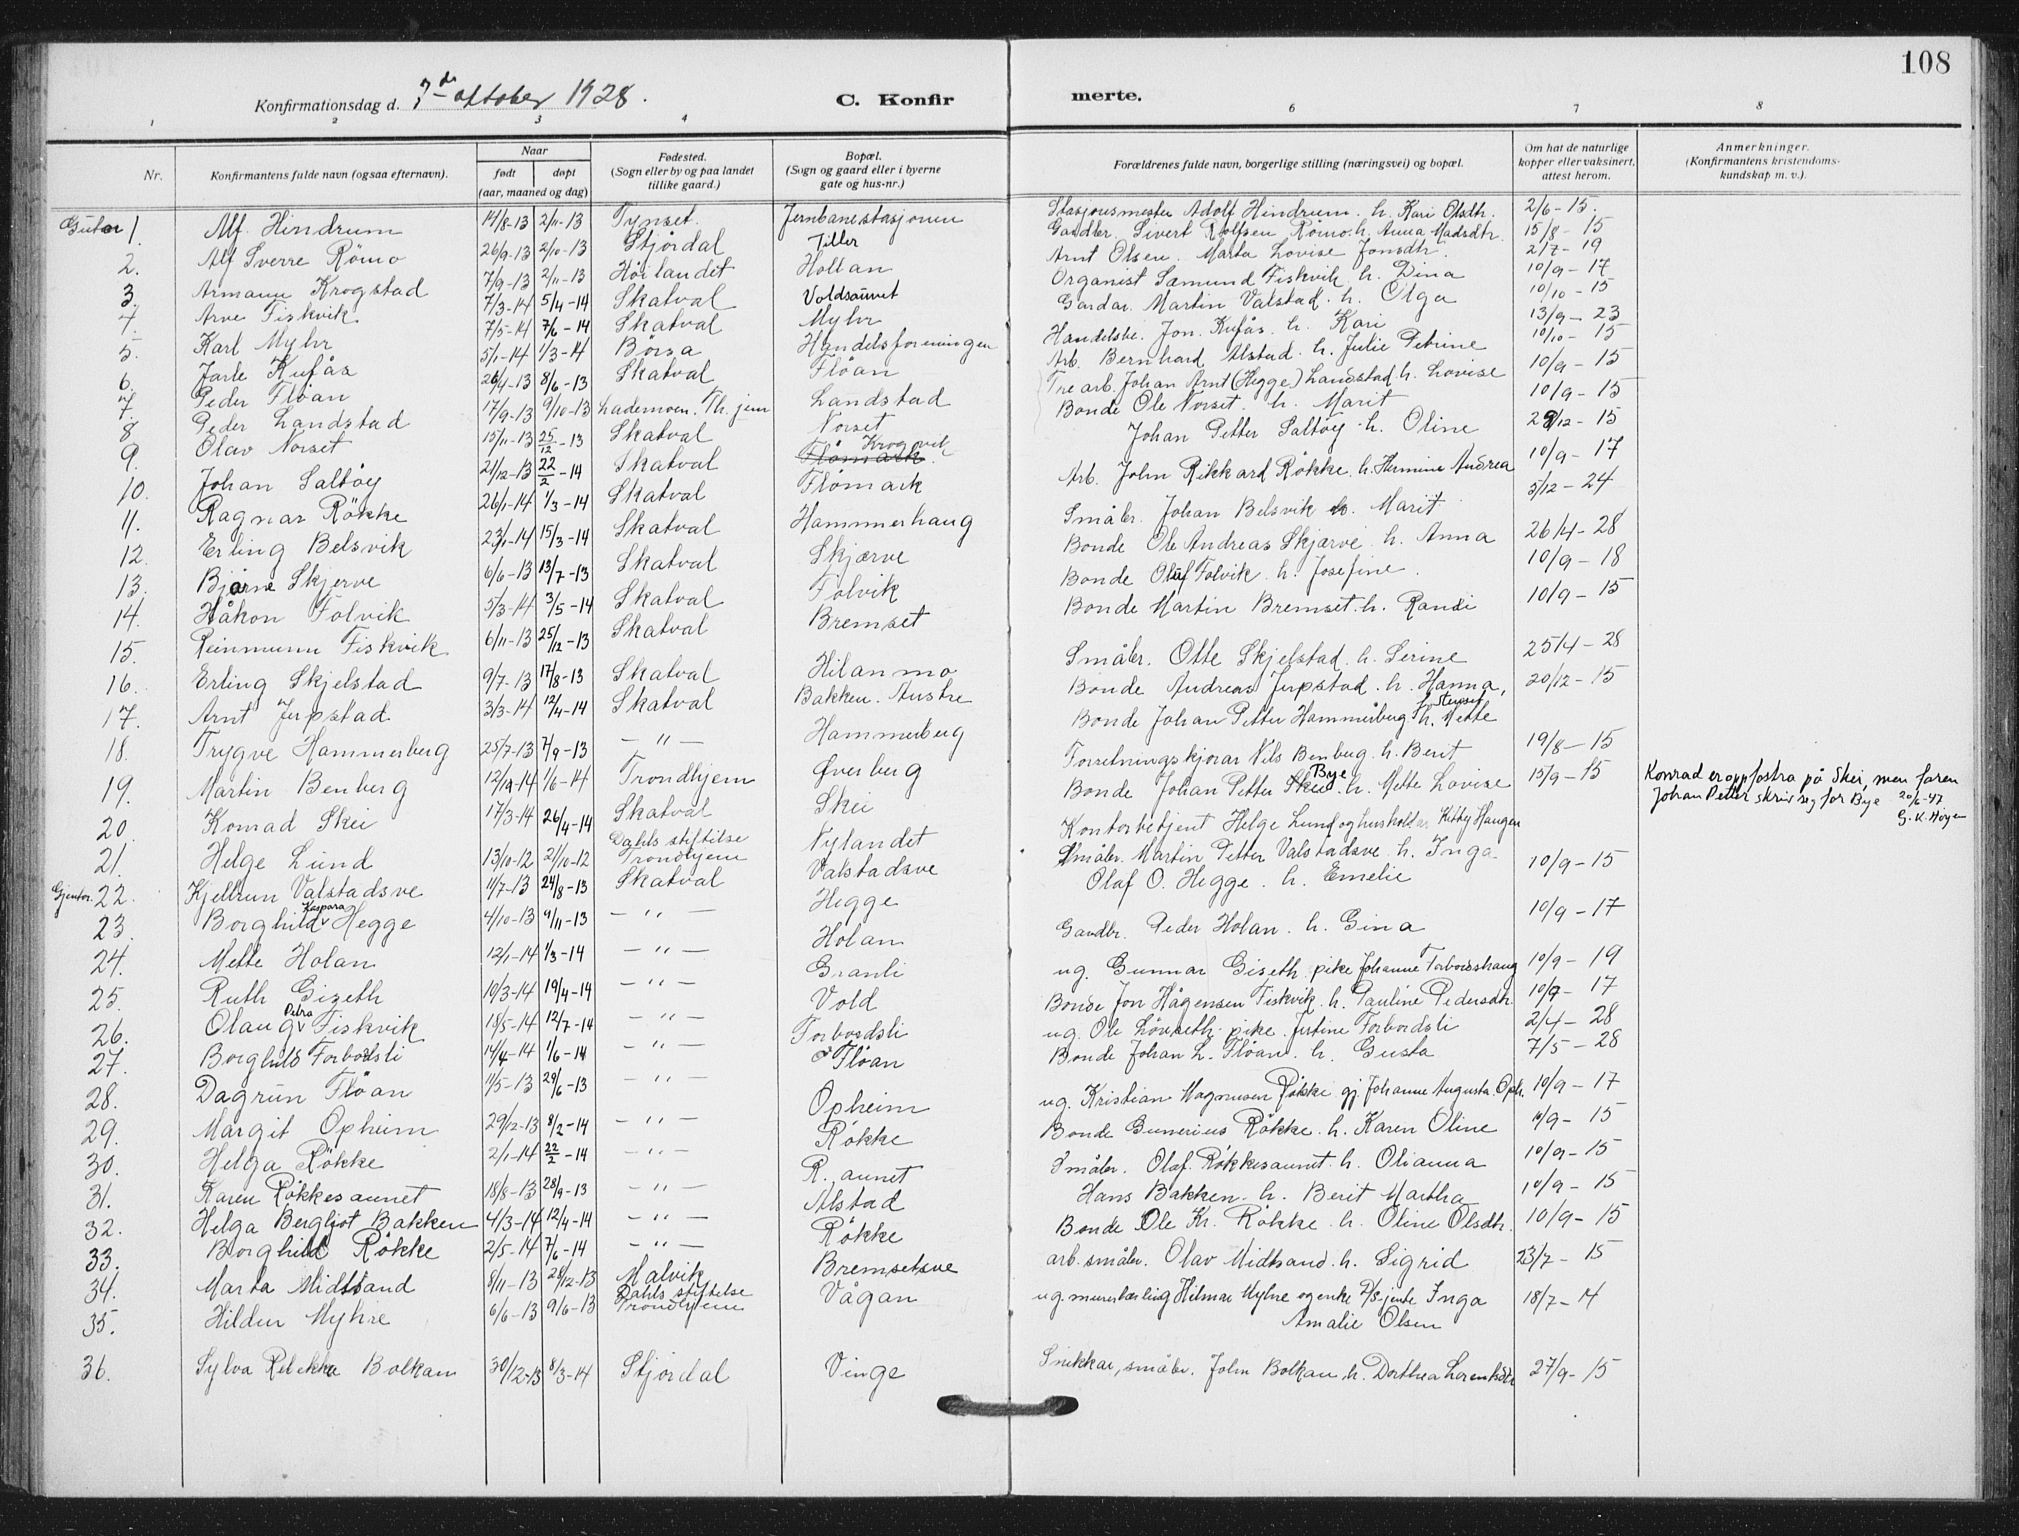 108
Konfirmationsdag d. 7de oktober 1928.
C. Konfirmerte.
1 2 3 4 6 7 8
Nr. Konfirmantens fulde navn (ogsaa efternavn). Naar født døpt (aar, maaned og dag) Fødested. (Sogn eller by og paa landet tillike gaard.) Bopæl. (Sogn og gaard eller i byerne gate og hus-nr.) Forældrenes fulde navn, borgerlige stilling (næringsvei) og bopæl. Om hat de naturlige kopper eller vaksinert, attest herom. Anmerkninger. (Konfirmantens kristendoms-kundskap m. v.).
Gutar 1. Alf Hindrum 14/8-13 2/11-13 Tynset. Jernbanestasjonen Stasjonsmester Adolf Hindrum. h. Kari Olsdtr. 2/6-15.
2. Alf Sverre Römo 26/9-13 2/10-13 Stjørdal Tiller Gardbr. Sivert Rolfsen Römo h. Anna Madsdtr. 15/8-15
3. Armann Krogstad 7/9-13 2/11-13 Hølandet Hollan Arnt Olsen. Marta Lovise Jonsdtr. 2/7-19
4. Arve Fiskvik 7/3-14 5/4-14 Skatval Voldsaunet Organist Sæmund Fiskvik h. Dina 10/9-17
5. Karl Myhr 7/5-14 7/6-14 Skatval Myhr Gardar. Martin Valstad. h. Olga 10/10-15
6. Jarle Kufås 5/1-14 1/3-14 Börsa Handelsforeningen Handelsbe. Jon. Kufås. h. Kari 13/9-23
7. Peder Flöan 26/4-13 8/6-13 Skatval Flöan Arb. Bernhard Alstad. h. Julie Petrine 10/10-15
8. Peder Landstad 17/9-13 9/10-13 Lademoen. Th.jem Landstad Tre arb. Johan Arnt (Hegge) Landstad. h. Lovise 10/9-15
9. Olav Norset 15/11-13 25/12-13 Skatval Norset Bonde Ole Norset. h. Marit 10/9-15
10. Johan Saltöy 21/12-13 22/2-14 Skatval Flömark Krogvik Johan Petter Saltöy. h. Oline 29/12-15
11. Ragnar Rökke 26/1-14 1/3-14 Skatval Flömark Arb. John Rikkard Rökke. h. Hermine Andrea 10/9-17
12. Erling Belsvik 23/1-14 15/3-14 Skatval Hammerhaug Småbr. Johan Belsvik h. Marit 5/12-24
13. Bjarne Skjerve 6/6-13 13/7-13 Skatval Skjærve Bonde Ole Andreas Skjærve. h. Anna 26/4-28
14. Håkon Folvik 5/3-14 3/5-14 Skatval Folvik Bonde Oluf Folvik. h. Josefine. 10/9-18
15. Reinmunn Fiskvik 6/11-13 25/12-13 Skatval Bremset Bonde Martin Bremset. h. Randi 10/9-15
16. Erling Skjelstad 9/7-13 17/8-13 Skatval Hilanmo Småbr. Otte Skjelstad. h. Serine 25/4-28
17. Arnt Jerpstad. 3/3-14 12/4-14 Skatval Bakken. Austre Bonde Andreas Jerpstad. h. Hanna, 20/12-15
18. Trygve Hammerberg 25/7-13 7/9-13 -"- Hammerberg Bonde Johan Petter Hammerberg h. Mette
19. Martin Benberg 12/12-14 1/6-14 Trondhjem Øverberg Forretningskjorar Nils Benberg. h. Berit 19/8-15
20. Konrad Skei 17/3-14 26/4-14 Skatval Skei Bonde Johan Petter Skei Bye. h. Mette Lovise 15/9-15 Konrad er oppfostra på Skei, men faren Johan Petter skriv seg for Bye 20/6-47 G. K. Høyen
21. Helge Lund 13/10-12 21/10-12 Dahls stiftelse Trondhjem Nylandet Kontorbetjent Helge Lund og husholder Kitty Haugen
Gjentor. 22. Kjellrun Valstadsve 11/7-13 24/8-13 Skatval Valstadsve Småbr. Martin Petter Valstadsve. h. Inga 10/9-15
23. Borghild Kaspara Hegge 4/10-13 9/11-13 -"- Hegge Olaf O. Hegge. h. Emelie
24. Mette Holan 12/1-14 1/3-14 -"- Holan Gardbr. Peder Holan. h. Gina 10/9-17
25. Ruth Giseth 10/3-14 19/4-14 -"- Granli ug. Gunnar Giseth pike Johanne Forbordshaug 10/9-19
26. Olaug Petra Fiskvik 18/5-14 12/7-14 -"- Vold Bonde Jon Hågensen Fiskvik. h. Pauline Pedersdtr. 10/9-17
27. Borghild Forbordsli 14/4-14 1/6-14 -"- Forbordsli ug. Ole Lövseth. pike Jutine Forbordsli 2/4-28
28. Dagrun Flöan 11/5-13 29/6-13 -"- Flöan Bonde Johan L. Flöan. h. Gusta 7/5-28
29. Margit Opheim 29/12-13 8/2-14 -"- Opheim ug. Kristian Magnusen Rökke gj. Johanne Augusta Oph. 10/9-17
30. Helga Rökke 2/1-14 22/2-14 -"- Rökke Bonde Gunerius Rökke. h. Karen Oline 11/9-15
31. Karen Rökkesaunet 18/8-13 28/9-13 -"- R. aunet Småbr. Olaf Rökkesaunet. h. Olianna 10/9-15
32. Helga Bergljot Bakken 4/3-14 12/4-14 -"- Alstad Hans Bakken. h. Berit Martha 10/9-15
33. Borghild Rökke 2/5-14 7/6-14 -"- Rökke Bonde Ole Kr. Rökke. h. Oline Olsdtr. 10/9-15
34. Marta Midtsand 8/11-13 28/12-13 Malvik Bremsetsve arb. småbr. Olav Midtsand. h. Sigrid 23/7-15
35. Hildur Myhre 6/6-13 9/6-13 Dahls stiftelse Trondhjem Vågan ug. murerlærling Hilmar Myhre og enke Inga Amalie Olsen 18/7-14
36. Sylva Rebekka Bolkan 30/12-13 8/3-14 Stjørdal Vinge Snekkar, småbr. John Bolkan h. Dorthea Lorentsdtr 27/9-15